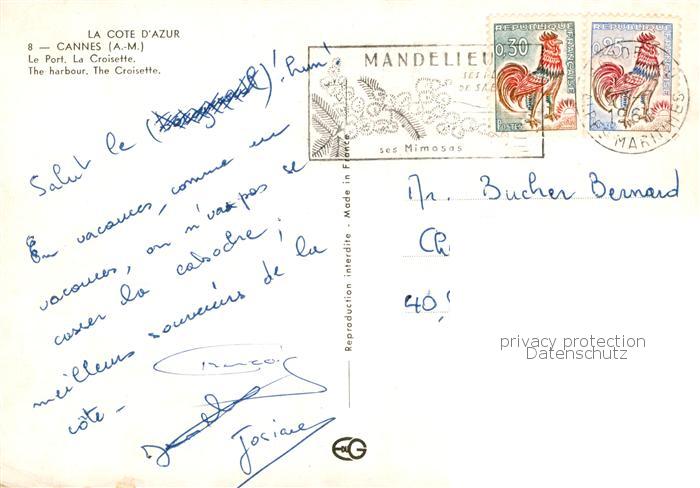 LA COTE D'AZUR
8 — CANNES (A.-M.)
Le Port, La Croisette.
The harbour, The Croisette.
Salut le ( )! hum!
En vacances, comme en
vacances, on n'va pas se
casser la caboche ;
meilleurs souvenirs de la
côte -
Josiane
Reproduction interdite - Made in France
MANDELIEU
SES
DE SA
ses Mimosas
0,30
REPUBLIQUE
FRANÇAISE
POSTES
0,25
REPUBLIQUE
FRANÇAISE
MARITIMES
Mr. Bucher Bernard
Ch
40
privacy protection
Datenschutz